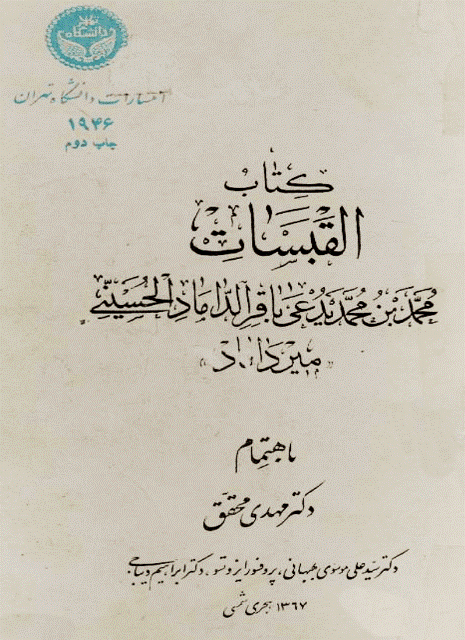 دانشگاه تهران
انتشارات دانشگاه تهران
۱۹۴۶
چاپ دوم
كِتاب
القَبَسَات
مُحَمَّد بْنُ مُحَمَّد يُدْعىٰ بَاقِرِ الدَّامَادِ الْحُسَيْنِي
«مِيرْدَامَاد»
باهتِمام
دکتر مهدی محقّق
دکتر سیّد علی موسوی بهبهانی، پروفسور ایزوتسو، دکتر ابراهیم دیباجی
۱۳۶۷ هجری شمسی